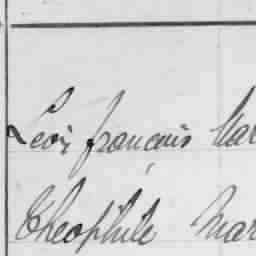 Leon françois Mar
Theophile Mar